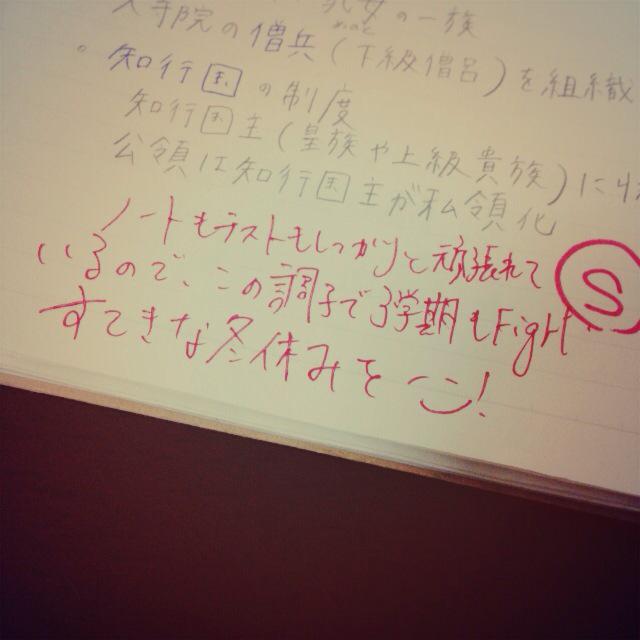 大寺院の僧兵(下級僧侶)を組織
。知行国の制度
知行国主(皇族や上級貴族)に
公領は知行国主が私領化
ノートもテストもしっかりと頑張れて
いるので、この調子で3学期もFight
すてきな冬休みを!
S